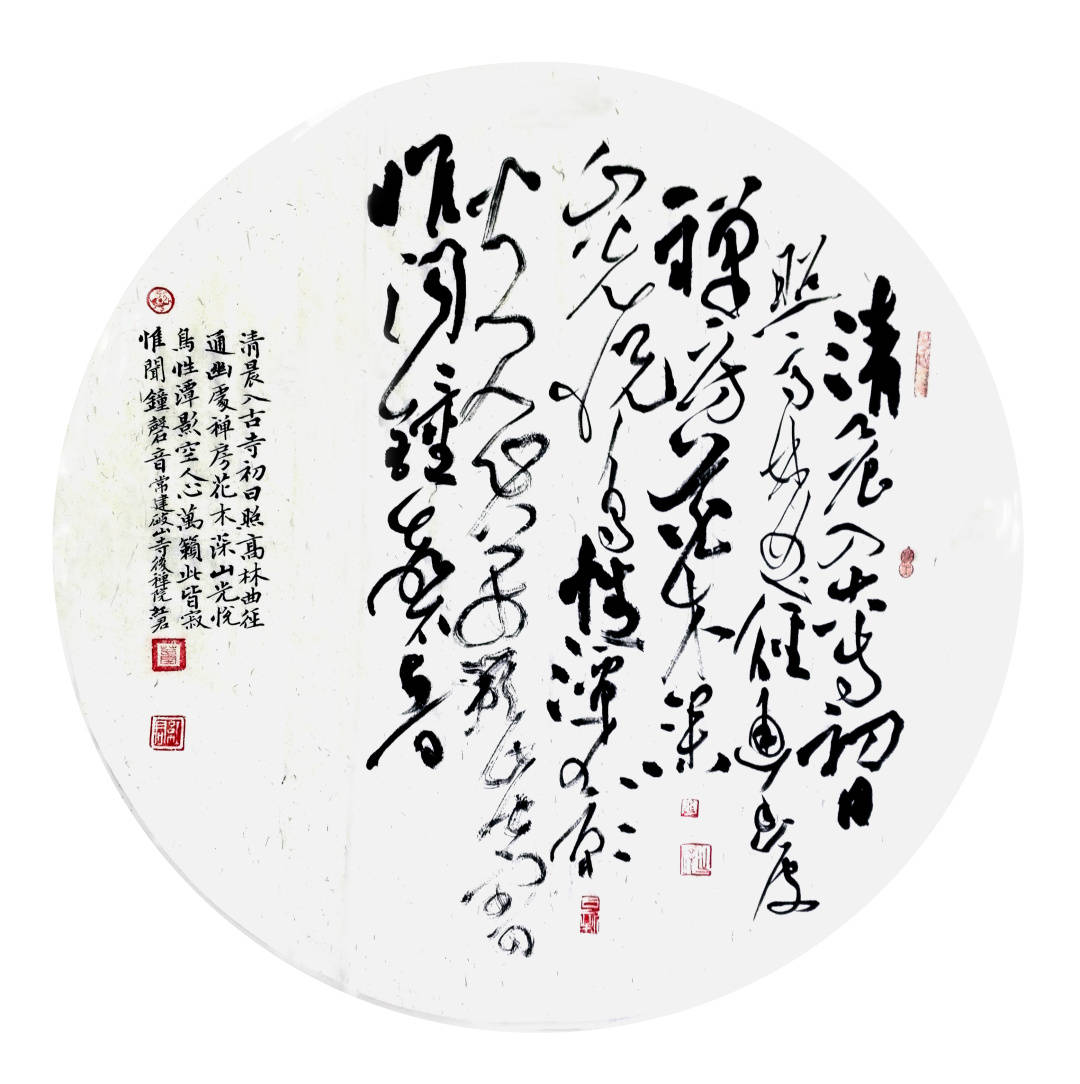 清晨入古寺初日
照高林曲徑通幽處
禪房花木深
山光悦鳥性潭影
空人心萬籟此皆寂
惟聞鐘磬音
清晨入古寺初日照高林曲徑
通幽處禅房花木深山光悦
鳥性潭影空人心萬籟此皆寂
惟聞鐘磬音常建破山寺後禪院